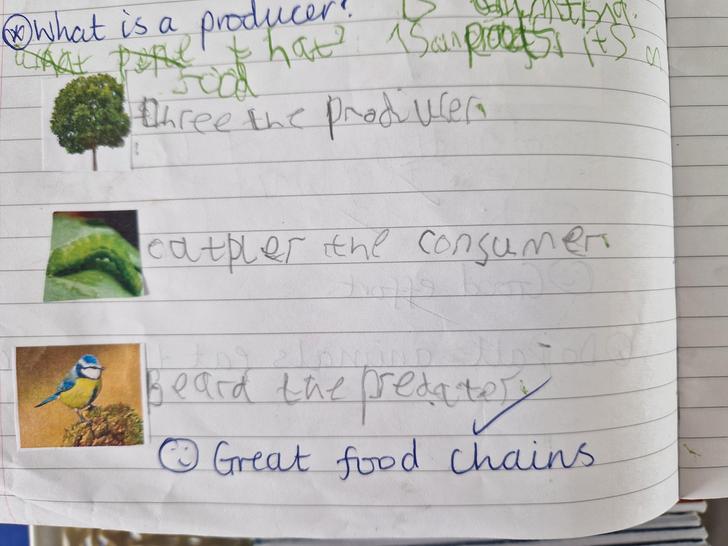 What is a producer?
that? its
food
three the producer.
catpler the consumer.
Beard the predater.
Great food chains